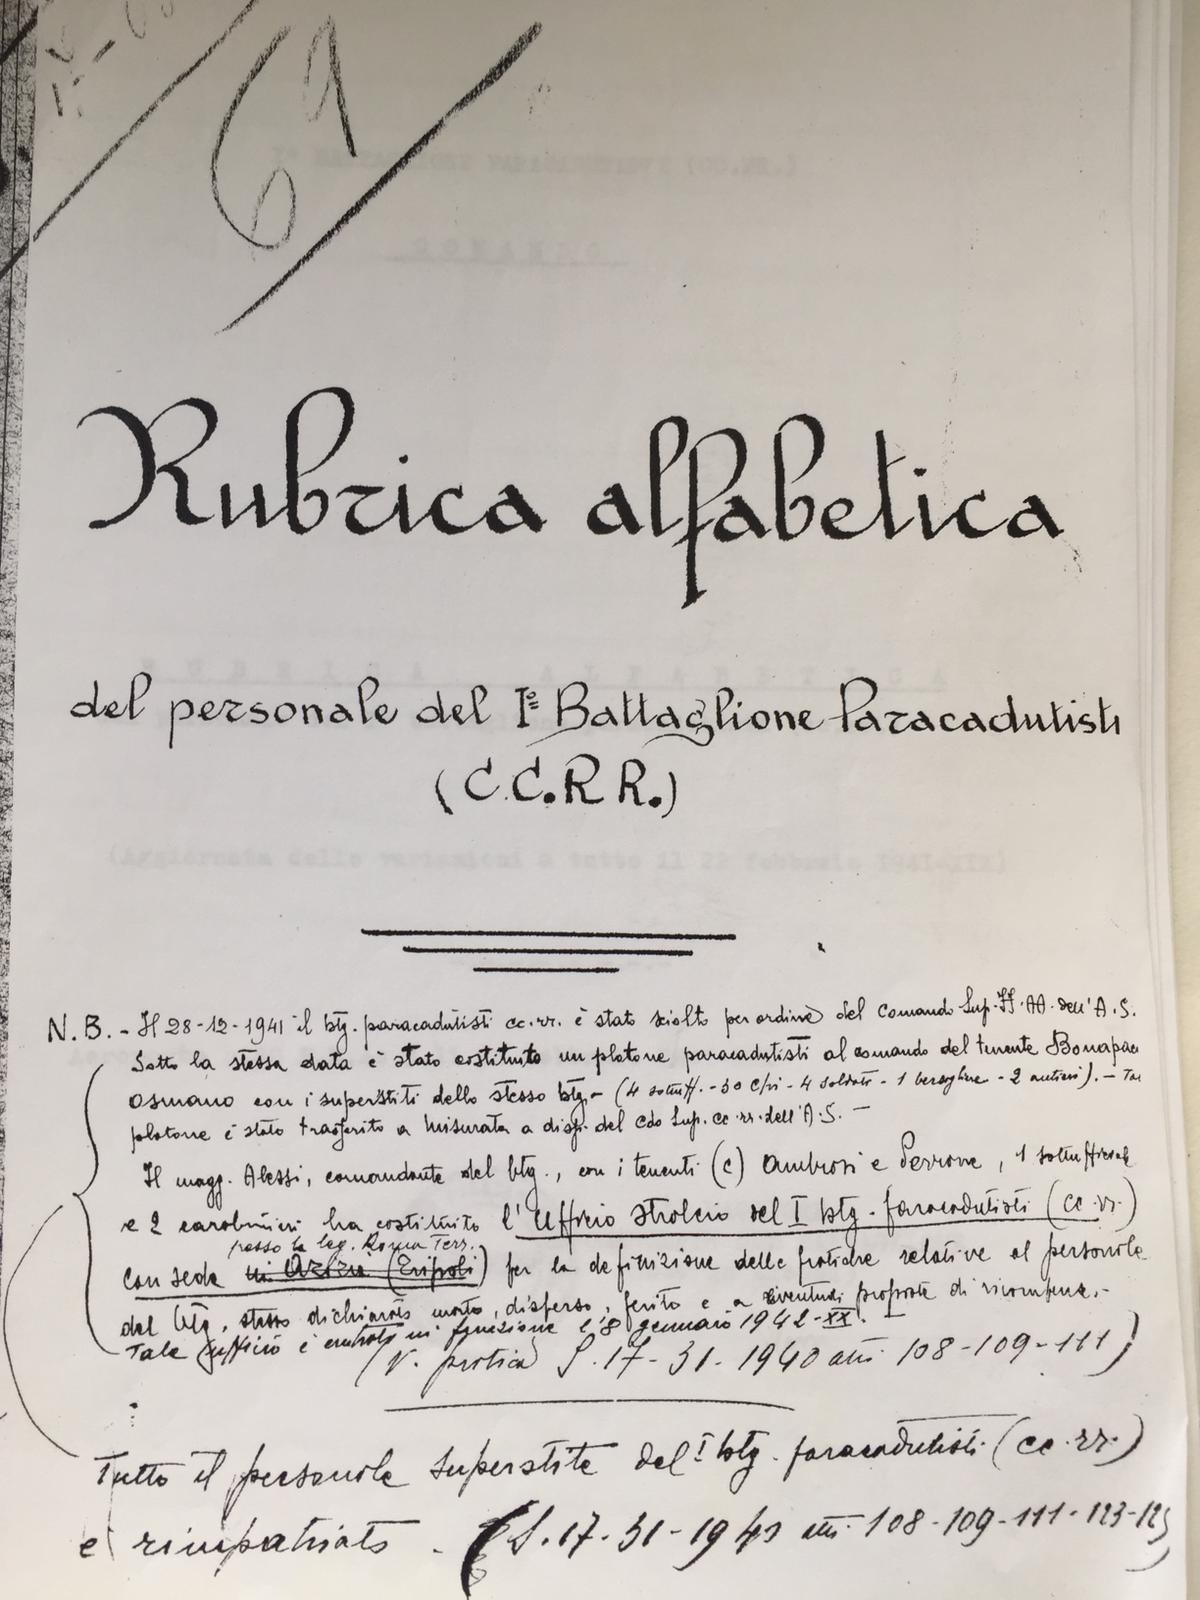 69
Rubrica alfabetica
del personale del Iº Battaglione Paracadutisti
(C.C.R R.)
N.B. - Il 28-12-1941 il btg. paracadutisti cc.rr. è stato sciolto per ordine del Comando Sup. FF.AA. dell'A.S.
Sotto la stessa data è stato costituito un plotone paracadutisti al comando del tenente Bonapac
Osmano con i superstiti dello stesso btg. - (4 sottuff. - 30 c/ri - 4 soldati - 1 bersagliere - 2 autieri). - Tal
plotone è stato trasferito a Misurata a disp. del Cdo Sup. cc.rr. dell'A.S. -
Il magg. Alessi, comandante del btg., con i tenenti (c) Ambrosi e Perrone, 1 sottufficiale
e 2 carabinieri ha costituito l'Ufficio stralcio del I btg. paracadutisti (cc.rr.)
presso la leg. Roma Terr.
con sede in (Tripoli) per la definizione delle pratiche relative al personale
del btg. stesso dichiarato morto, disperso, ferito e a eventuali proposte di ricompense. -
Tale ufficio è entrato in funzione l'8 gennaio 1942-XX. -
(V. pratica S.17-31-1940 atti 108-109-111)
Tutto il personale superstite del I btg. paracadutisti (cc.rr.)
è rimpatriato. (S.17-31-1941 atti 108-109-111-123-125)
Iº BATTAGLIONE PARACADUTISTI (CC.RR.)
COMANDO
RUBRICA ALFABETICA
(Aggiornata delle variazioni a tutto il 22 febbraio 1941-XIX)